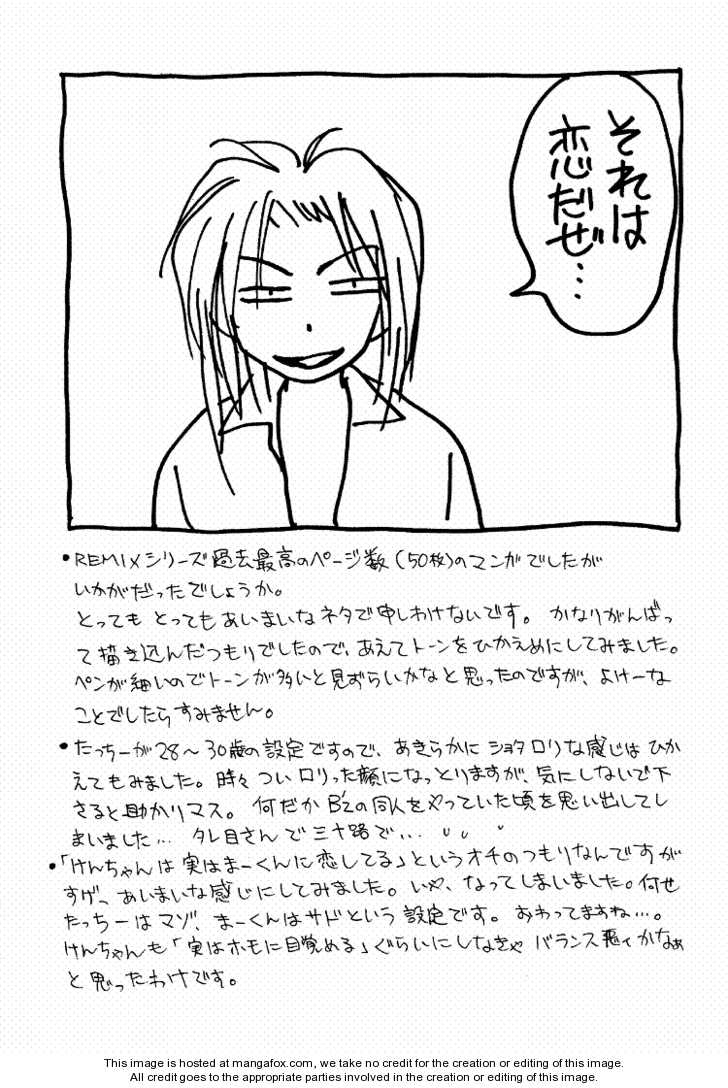 それは
恋だぜ…
・REMIXシリーズ過去最高のページ数(50枚)のマンガでしたが
いかがだったでしょうか。
とっても とってもあいまいなネタで申しわけないです。 かなりがんばっ
て描き込んだつもりでしたので、あえてトーンをひかえめにしてみました。
ペンが細いのでトーンが多いと見ずらいかなと思ったのですが、よけーな
ことでしたらすみません。
・たっちーが28〜30歳の設定ですので、あきらかに ショタロリな感じは ひか
えてもみました。時々 ついロリった顔になっとりますが、気にしないで下
さると助かりマス。 何だか B'zの同人をやっていた頃を思い出してし
まいました… タレ目さんで三十路で…
・「けんちゃんは 実はまーくんに恋してる」というオチのつもりなんですが
すげ、あいまいな感じにしてみました。いや、なってしまいました。何せ
たっちーはマゾ、まーくんはサドという 設定です。 おわってますね…。
けんちゃんも「実はホモに目覚める」ぐらいにしなきゃ バランス悪イかなぁ
と思ったわけです。
This image is hosted at mangafox.com, we take no credit for the creation or editing of this image.
All credit goes to the appropriate parties involved in the creation or editing of this image.